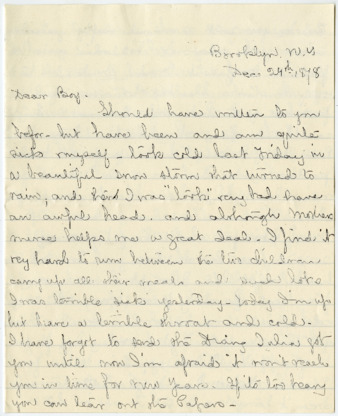 Brooklyn, N.Y.
Dec 24th, 1878
Dear Boy.
Should have written to you
before but have been and am quite
sick myself - took cold last Friday in
a beautiful snow storm that turned to
rain, and I was "took" very bad have
an awful head. and although Mother
nurse helps me a great deal. I find it
very hard to run between the two children
carry up all their meals and such lots
I was terrible sick yesterday - today I'm up
but have a terrible throat and cold.
I have forgot to send the I got
you until now I'm afraid it won't reach
you in time for New Years. If it's too heavy
you can tear out the Papers -